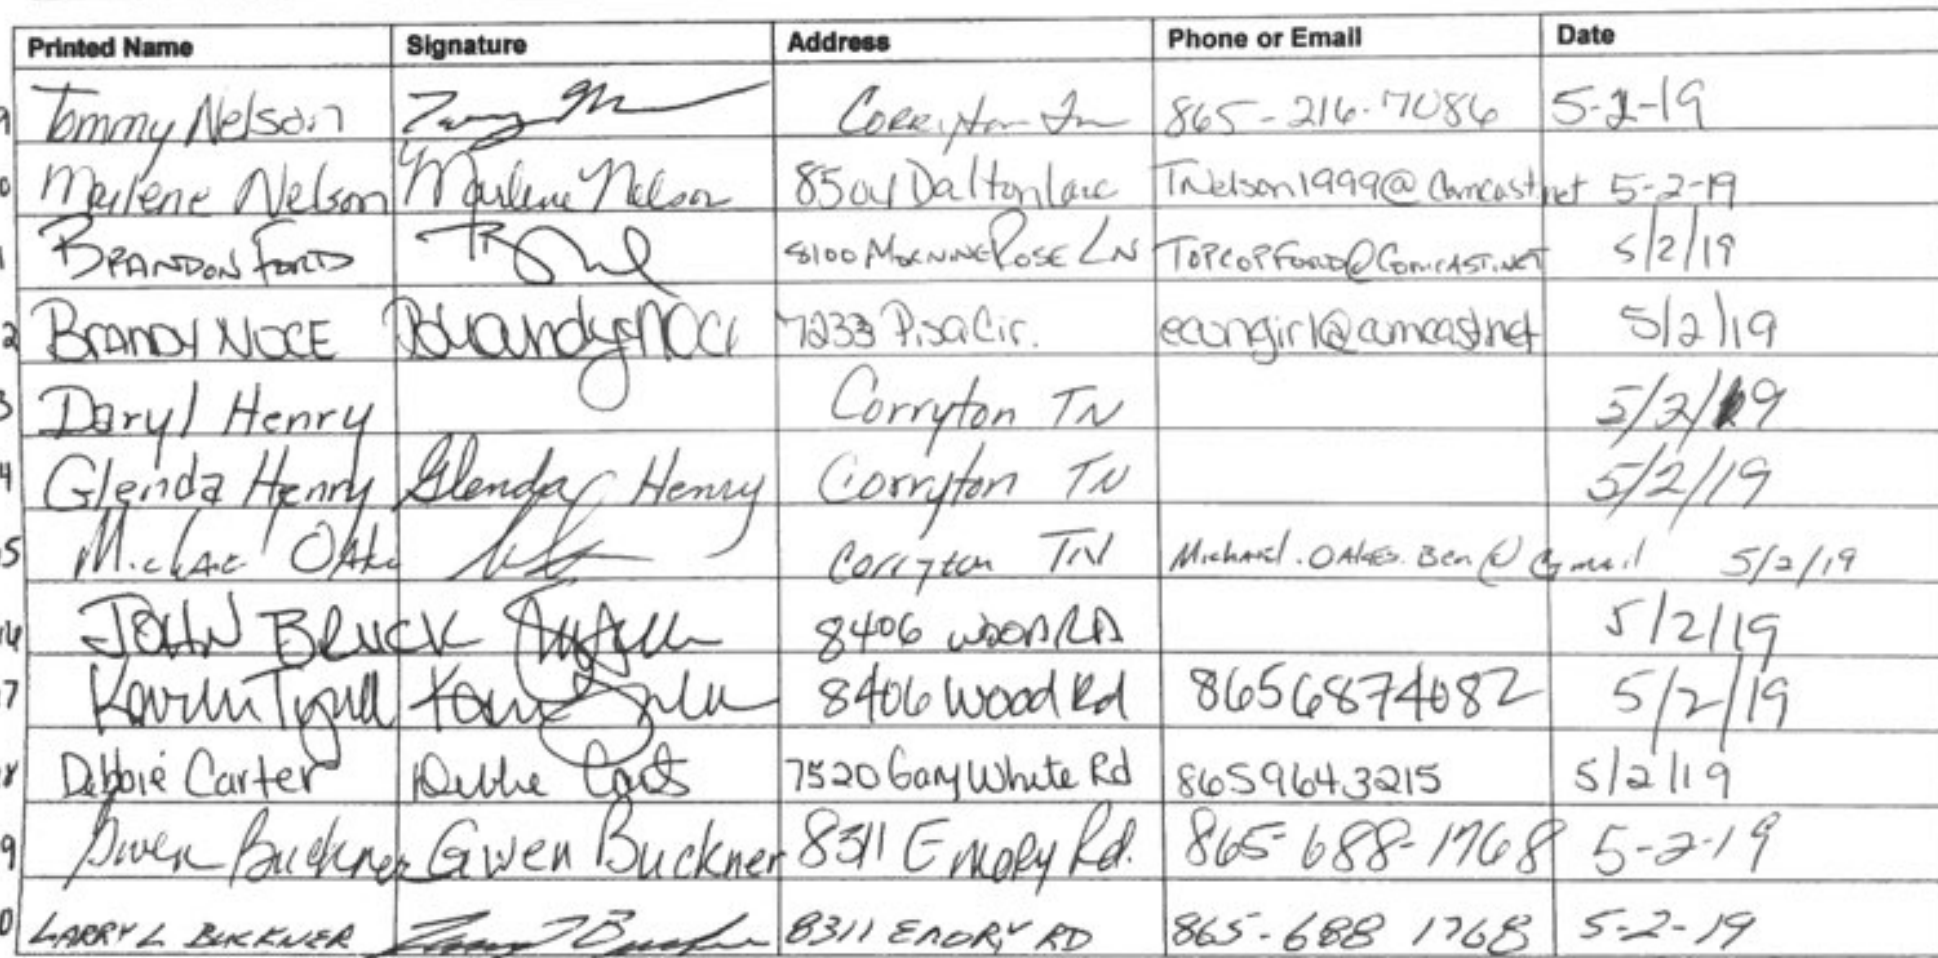 Printed Name Signature Address Phone or Email Date
9 Tommy Nelson Corryton Tn 865-216-7086 5-2-19
0 Marlene Nelson Marlene Nelson 8501 Dalton Lane TNelson1999@comcast.net 5-2-19
1 BRANDON FORD 8100 MORNING ROSE LN TOPCOPFORD@COMCAST.NET 5/2/19
2 BRANDY NOCE Brandy Noce 7233 Pisa Cir. ecungirl@comcast.net 5/2/19
3 Daryl Henry Corryton TN 5/2/19
4 Glenda Henry Glenda Henry Corryton TN 5/2/19
5 Michael Oakes Corryton TN Michael.OAKES.Ben@Gmail 5/2/19
6 JOHN BRUCK 8406 WOOD RD 5/2/19
7 8406 Wood Rd 8656874082 5/2/19
8 Debbie Carter Debbie Carter 7520 Gary White Rd 8659643215 5/2/19
9 Gwen Buckner Gwen Buckner 8311 Emory Rd. 865-688-1768 5-2-19
0 LARRY L BUCKNER 8311 EMORY RD 865-688 1768 5-2-19